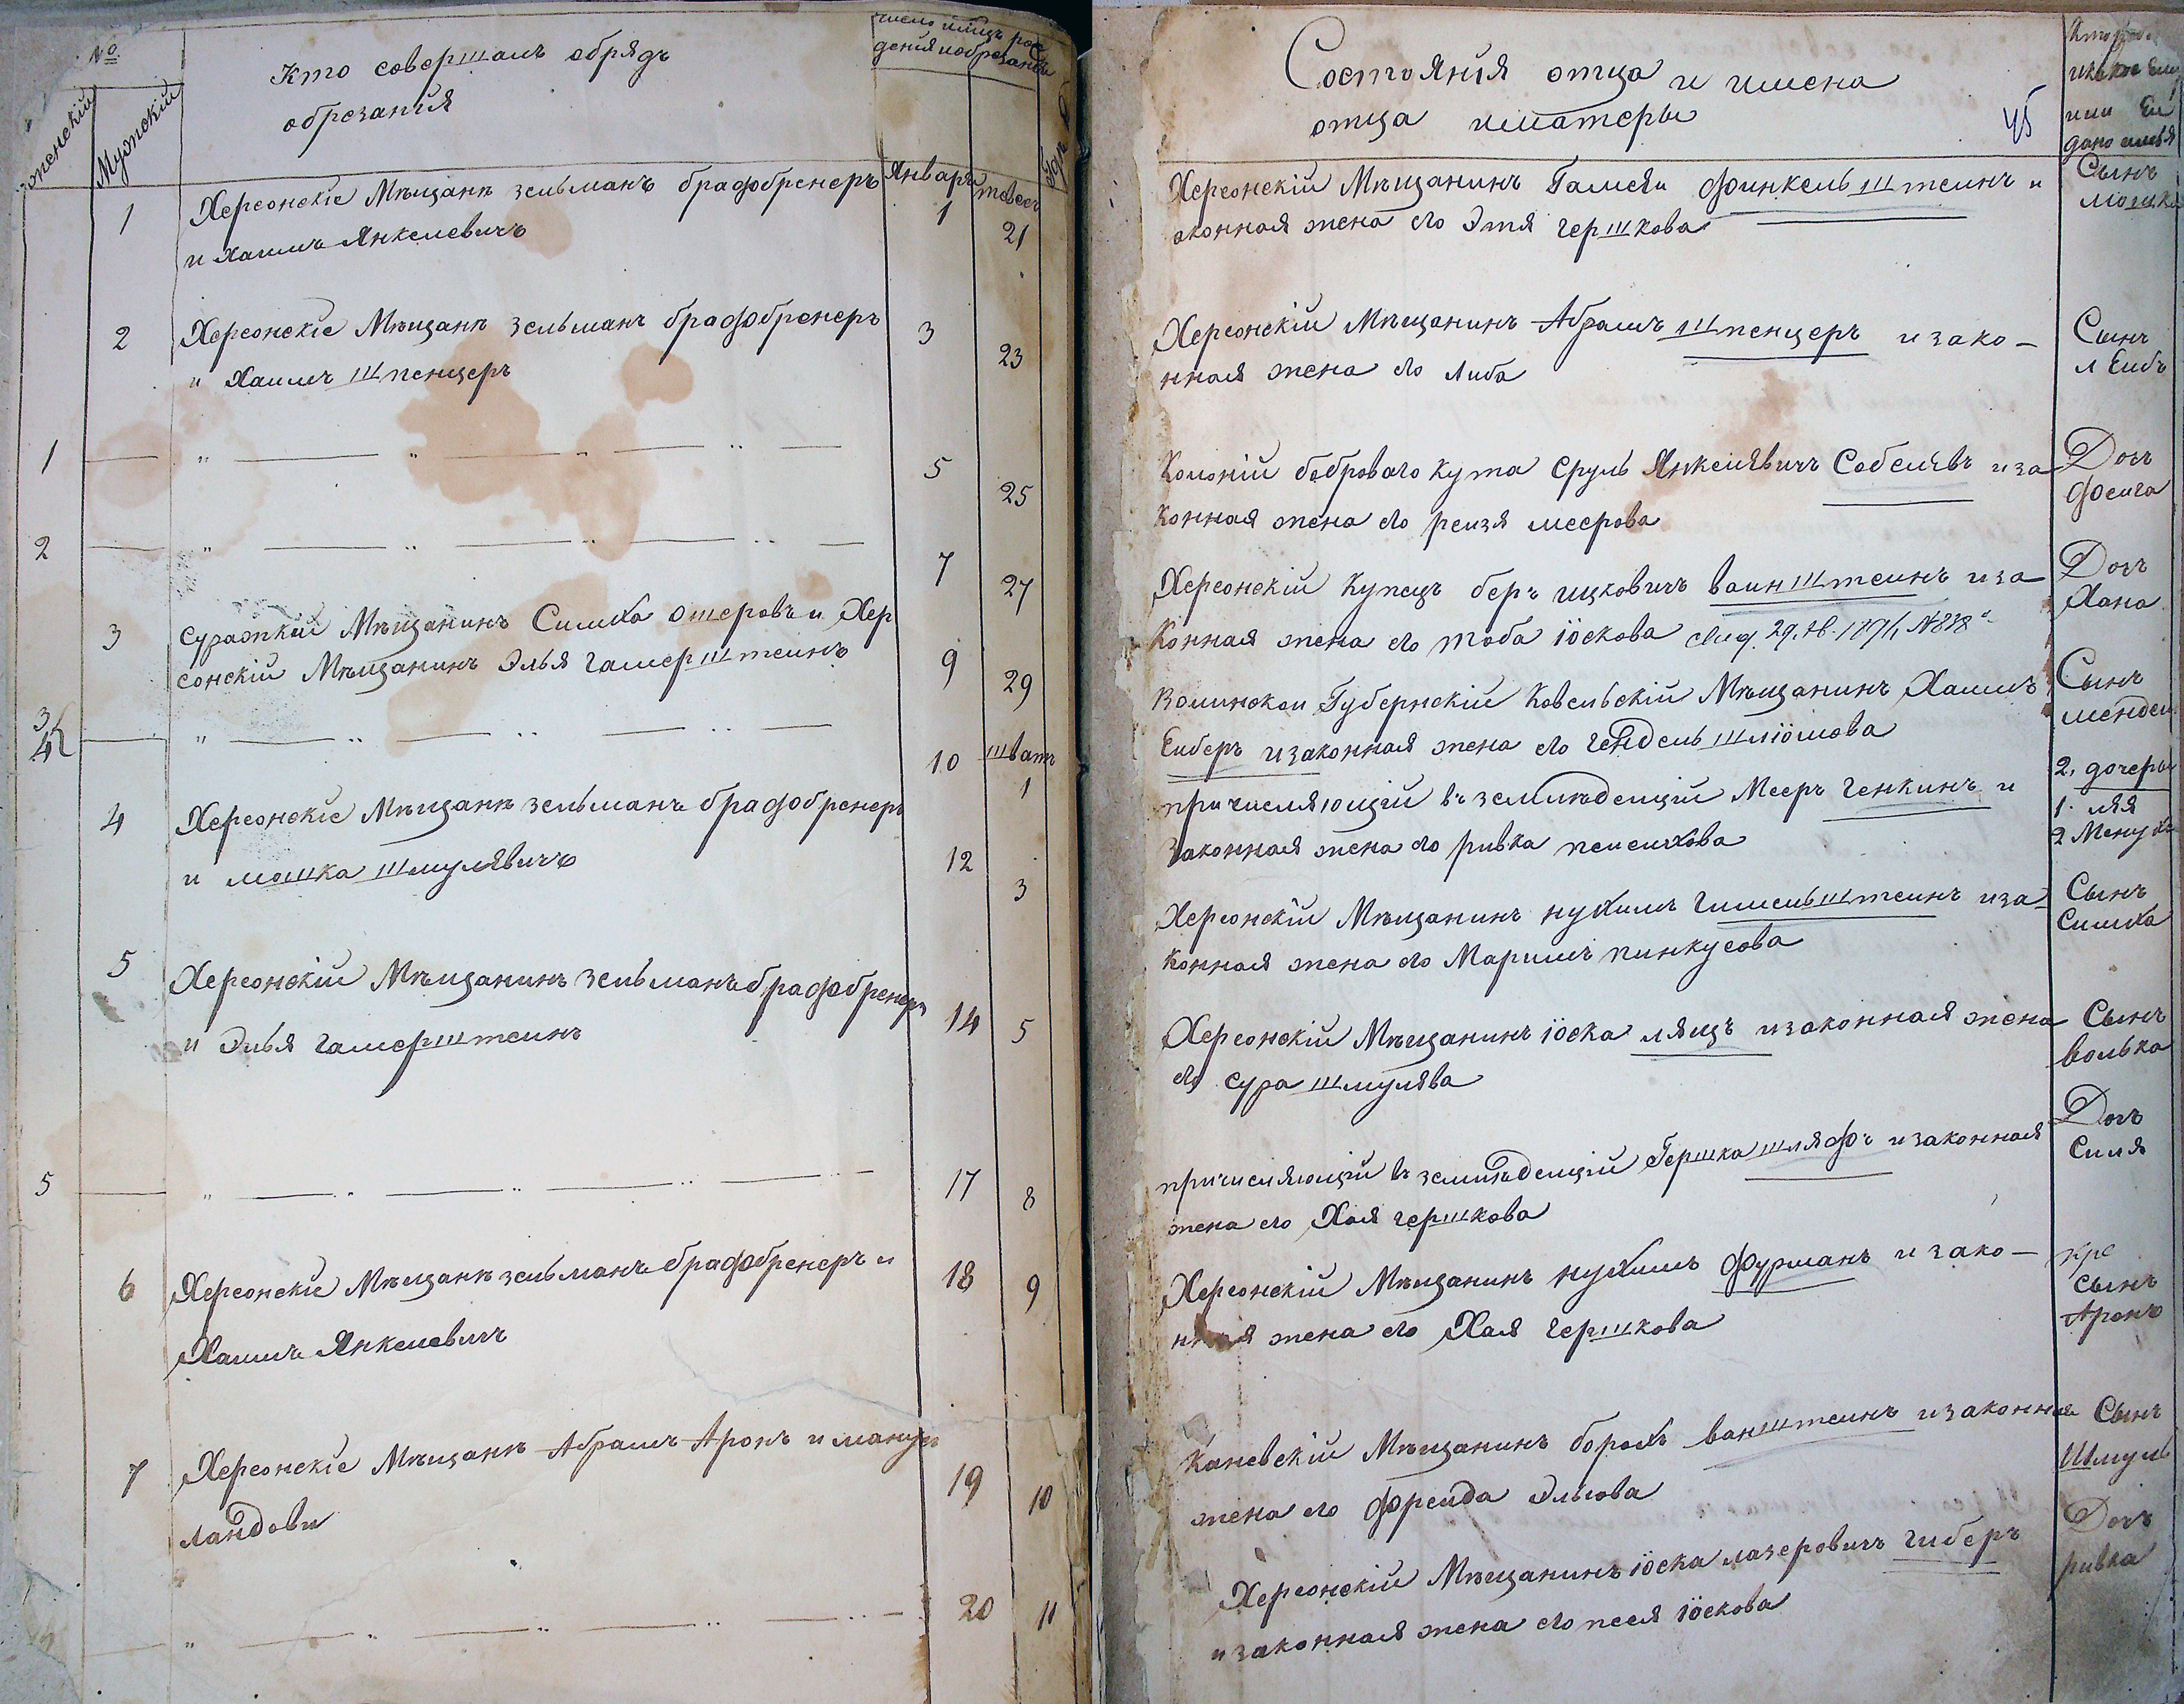 №
женскій
Мужскій
Кто совершалъ обрядъ
обрезанія
число и мцъ рож
денія и обрезанія
Январь
тевесъ
1
Херсонскіе Мѣщане зельманъ брафбренеръ
и Хаимъ Янкелевичъ
1
21
2
Херсонскіе Мѣщане зельманъ брафбренеръ
и Хаимъ шпенцеръ
3
23
1
5
25
2
7
27
3
Суражкій Мѣщанинъ Симха ошеровъ и Хер
сонскій Мѣщанинъ Элья гамерштеинъ
9
29
3
10
шватъ
1
4
Херсонскіе Мѣщане зельманъ брафбренеръ
и мошка шмулявичъ
12
3
5
Херсонскій Мѣщанинъ зельманъ брафбренеръ
и Элья гамерштеинъ
14
5
5
17
8
6
Херсонскіе Мѣщане зельманъ брафбренеръ и
Хаимъ Янкелевичъ
18
9
7
Херсонскіе Мѣщане Абрамъ Аронъ и
ландови
19
10
20
11
Состоянія отца и имена
отца и матеры
45
дано имья
Херсонскій Мѣщанинъ финкельштеинъ и
аконная жена его Этя гершкова
Сынъ
мошка
Херсонскій Мѣщанинъ Абрамъ шпенцеръ и зако-
нная жена его Либа
Сынъ
лейбъ
Колоній боброваго кута Сруль Янкелявичъ Собелявъ и за
конная жена его реизя меерова
Дочъ
феига
Херсонскій Купецъ беръ ицковичъ ваинштеинъ и за
конная жена его тоба іоскова
Дочъ
Хана
Волинскои Губернскій Ковельскій Мѣщанинъ Хаимъ
Еиберъ и законная жена его гендель шлiомова
Сынъ
мендель
причисляющій въ земледелцій Мееръ генкинъ и
законная жена его ривка пеисихова
2. дочеры
1. ляя
2 Менуха
Херсонскій Мѣщанинъ нухимъ гимельштеинъ и за
конная жена его Маримъ пинкусова
Сынъ
Симха
Херсонскій Мѣщанинъ іоска лящъ и законная жена
его сура шмулява
Сынъ
волька
причисляющій въ земледелцій Гершка шляфъ и законная
жена его Хая гершкова
Дочъ
Силя
Херсонскій Мѣщанинъ нухимъ фурманъ и зако-
нная жена его Хая гершкова
Сынъ
Аронъ
Каневскій Мѣщанинъ борохъ ванштеинъ и законная
жена его фреида Эльова
Сынъ
Шмуль
Херсонскій Мѣщанинъ іоска лазеровичъ гиберъ
и законная жена его песя іоскова
Дочъ
ривка